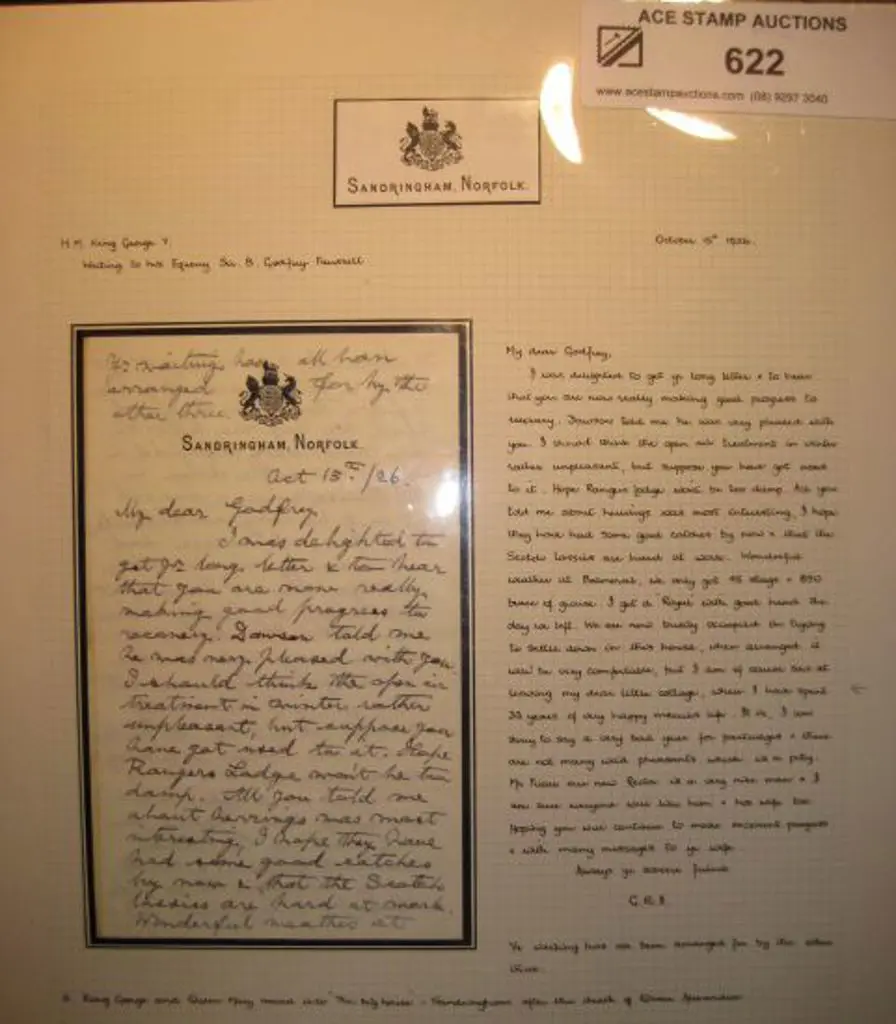 ACE STAMP AUCTIONS
622
www.acestampauctions.com (08) 9297 3040
SANDRINGHAM, NORFOLK.
H.M. King George V.
Writing to his Equerry Sir B. Godfrey
October 15th 1926.
Yr waiting has all been
arranged for by the
other three.
SANDRINGHAM, NORFOLK.
Oct 15th/26.
My dear Godfrey,
I was delighted to
get yr long letter & to hear
that you are now really
making good progress to
recovery. Dawson told me
he was very pleased with you.
I should think the open air
treatment in winter rather
unpleasant, but suppose you
have got used to it. Hope
Rangers Lodge won't be too
damp. All you told me
about herrings was most
interesting, I hope they have
had some good catches
by now & that the Scotch
lassies are hard at work.
Wonderful weather at
My dear Godfrey,
I was delighted to get yr long letter & to hear
that you are now really making good progress to
recovery. Dawson told me he was very pleased with
you. I should think the open air treatment in winter
rather unpleasant, but suppose you have got used
to it. Hope Rangers lodge won't be too damp. All you
told me about herrings was most interesting, I hope
they have had some good catches by now & that the
Scotch lassies are hard at work. Wonderful
weather at Balmoral, we only got 45 stags &
brace of grouse. I got a Royal with good head the
day we left. We are now busily occupied in trying
to settle down in this house, when arranged it
will be very comfortable, but I am of course sad at
leaving my dear little cottage, where I have spent
33 years of very happy married life. It is, I am
sorry to say a very bad year for partridges & there
are not many wild pheasants which is a pity.
Mr our new Rector is a very nice man & I
am sure everyone will like him & his wife too.
Hoping you will continue to make excellent progress
& with many messages to yr wife
Always yr sincere friend
G.R.I.
Yr waiting has all been arranged for by the other
three.
King George and Queen Mary moved into "The big house" - Sandringham after the death of Queen Alexandra